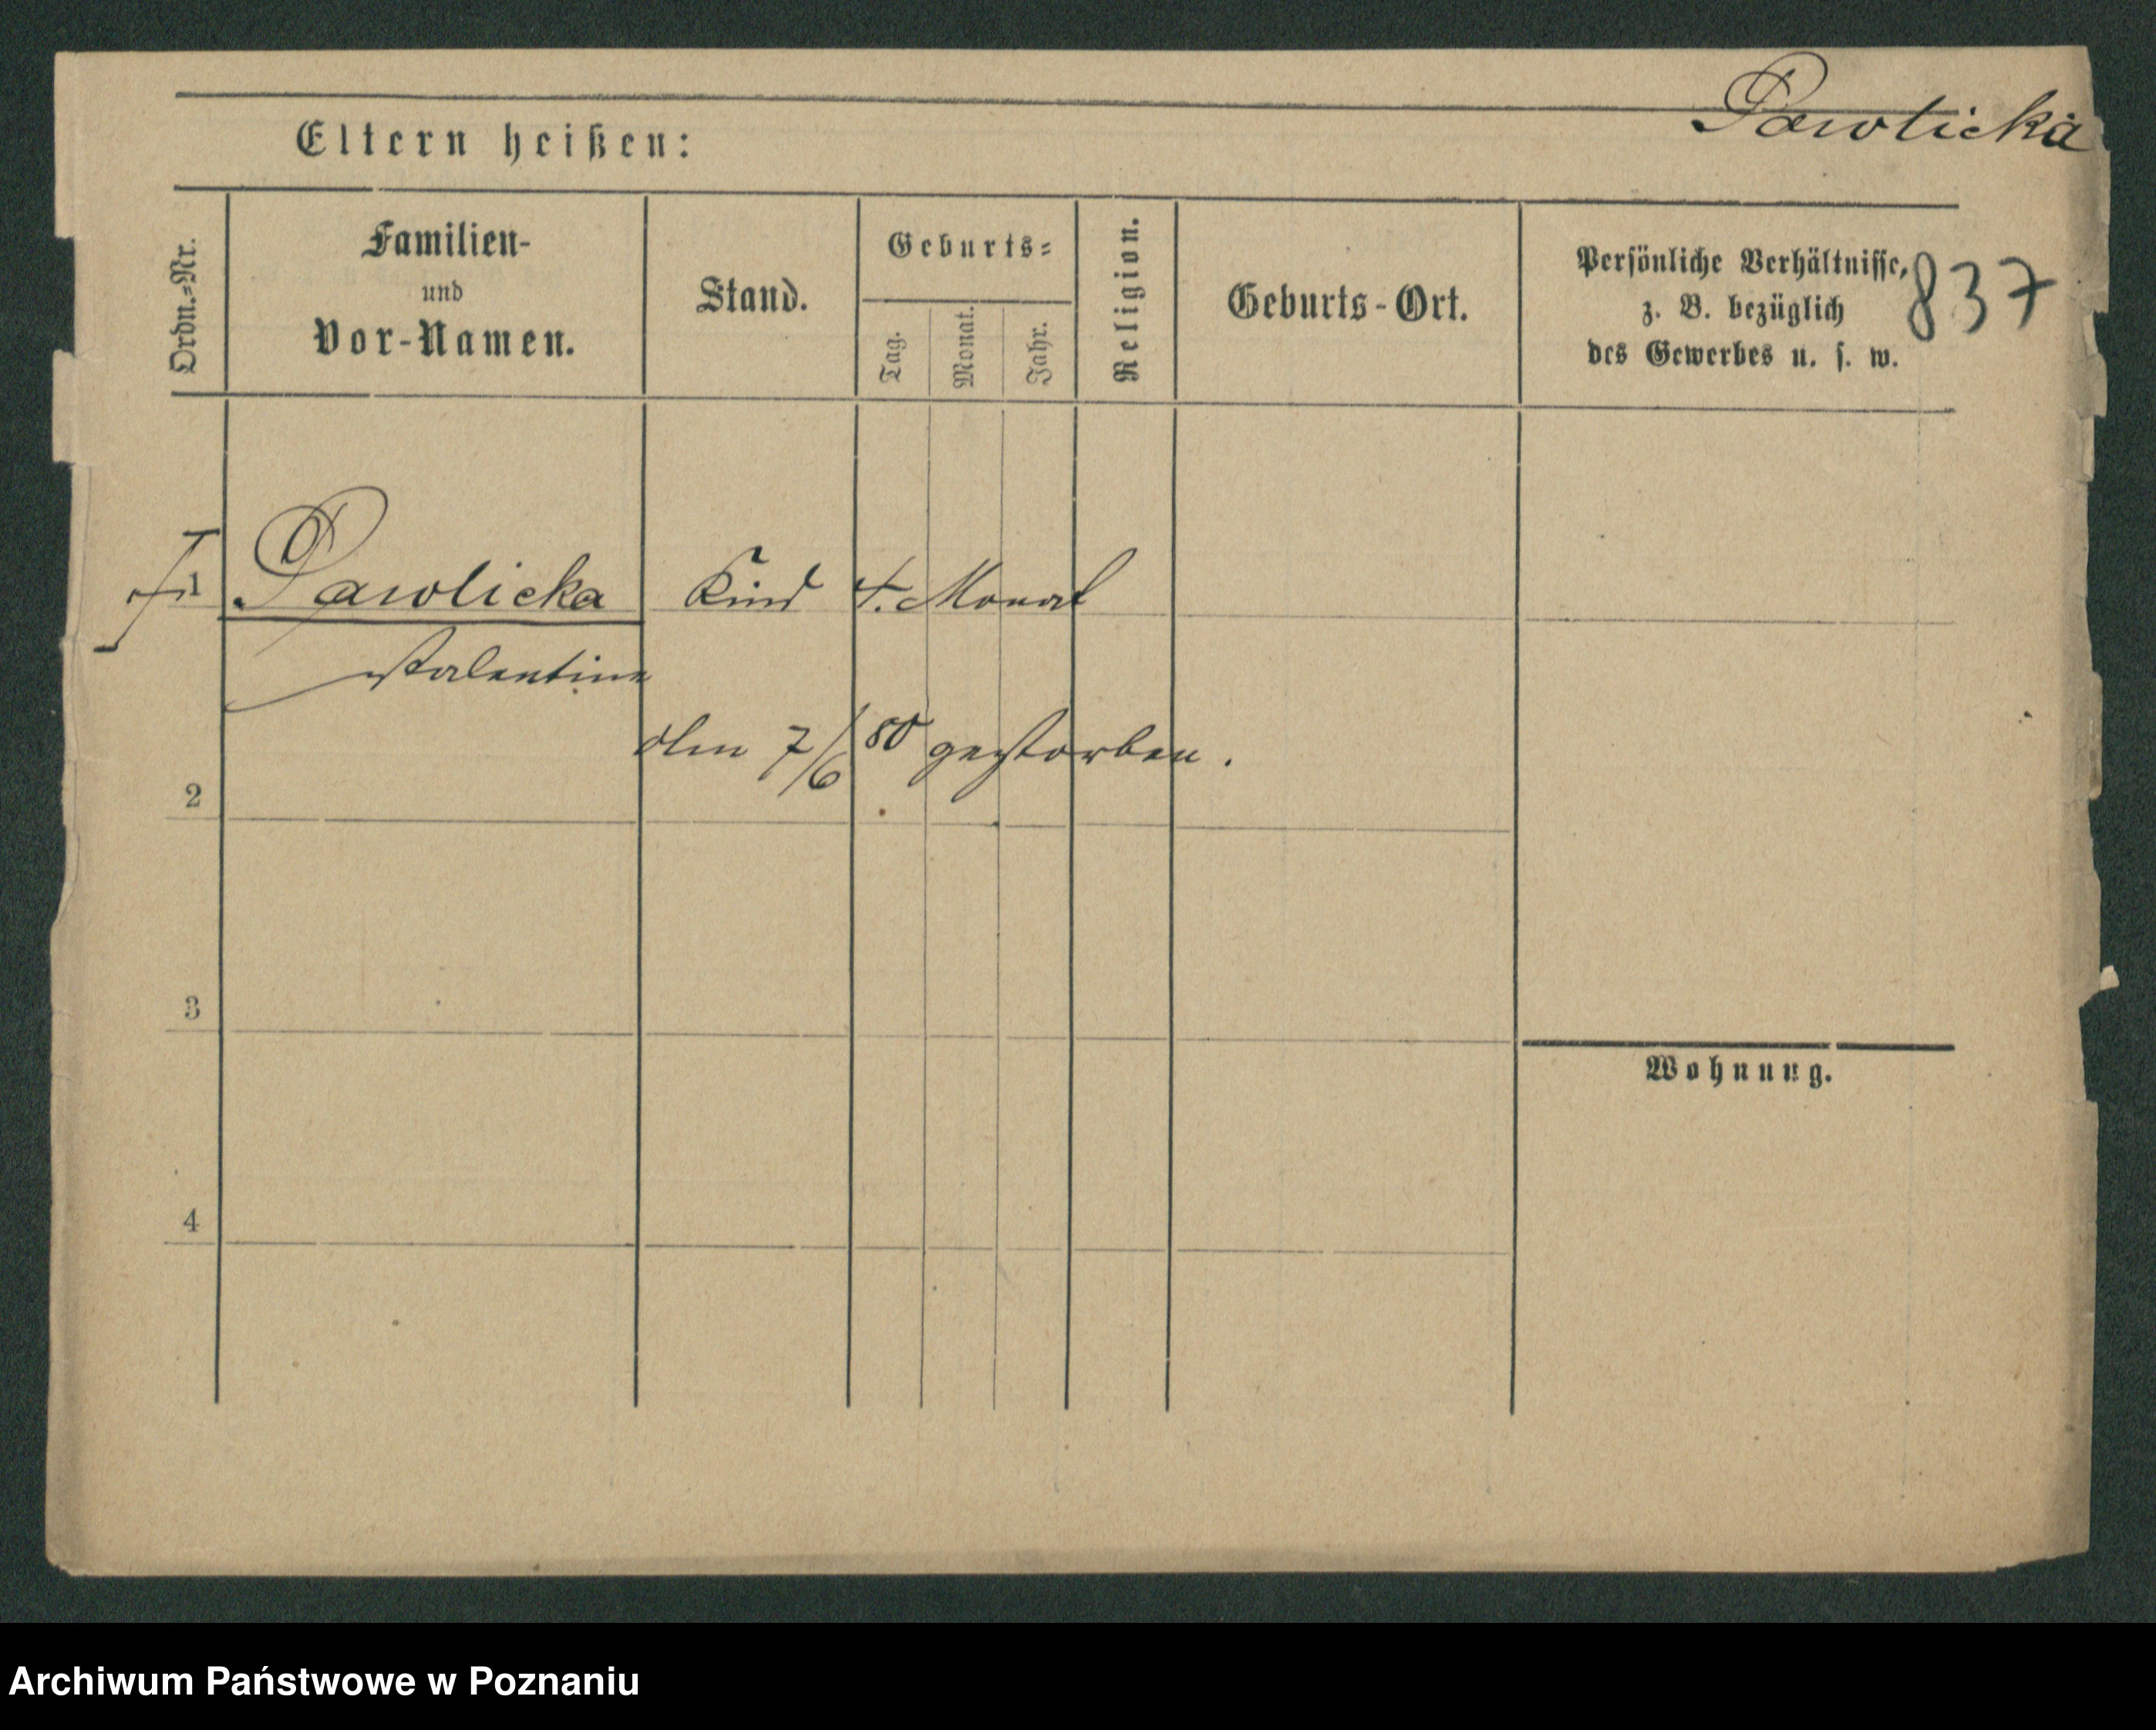 Pawlicka
Eltern heißen:
Ordn.-Nr.
Familien-
und
Vor-Namen.
Stand.
Geburts-
Tag.
Monat.
Jahr.
Religion.
Geburts-Ort.
Persönliche Verhältnisse,
z. B. bezüglich
des Gewerbes u. s. w.
837
1 Pawlicka Kind 4. Monat
Valentine
Am 7/6 80 gestorben.
2
3
Wohnung.
4
Archiwum Państwowe w Poznaniu